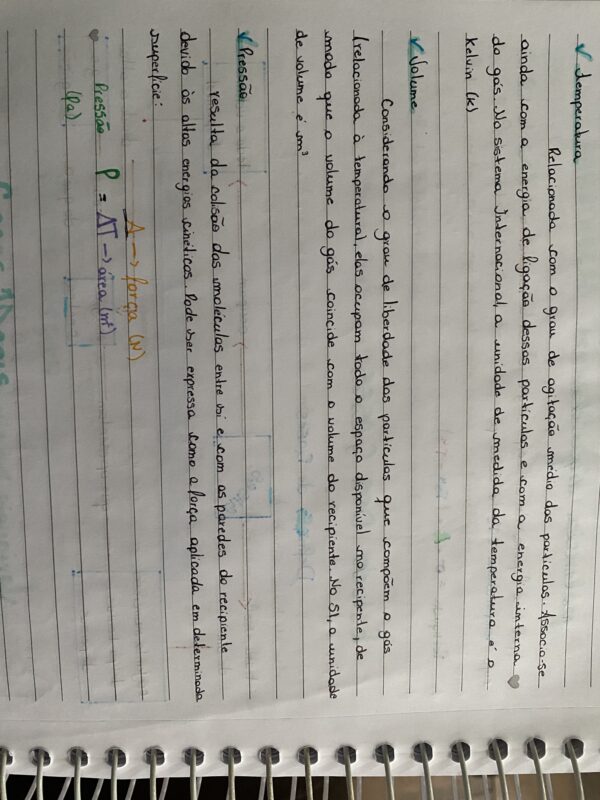 ✓ Temperatura
Relacionada com o grau de agitação média das partículas. Associa-se
ainda com a energia de ligação dessas partículas e com a energia interna
do gás. No Sistema Internacional, a unidade de medida da temperatura é o
Kelvin (K)
✓ Volume
Considerando o grau de liberdade das partículas que compõem o gás
(relacionada à temperatura), elas ocupam todo o espaço disponível no recipiente, de
modo que o volume do gás coincide com o volume do recipiente. No SI, a unidade
de volume é m³
✓ Pressão
resulta da colisão das moléculas entre si e com as paredes do recipiente
devido às altas energias cinéticas. Pode ser expressa como a força aplicada em determinada
superfície:
A → força (N)
Pressão P = ΔT → área (m²)
(Pa)